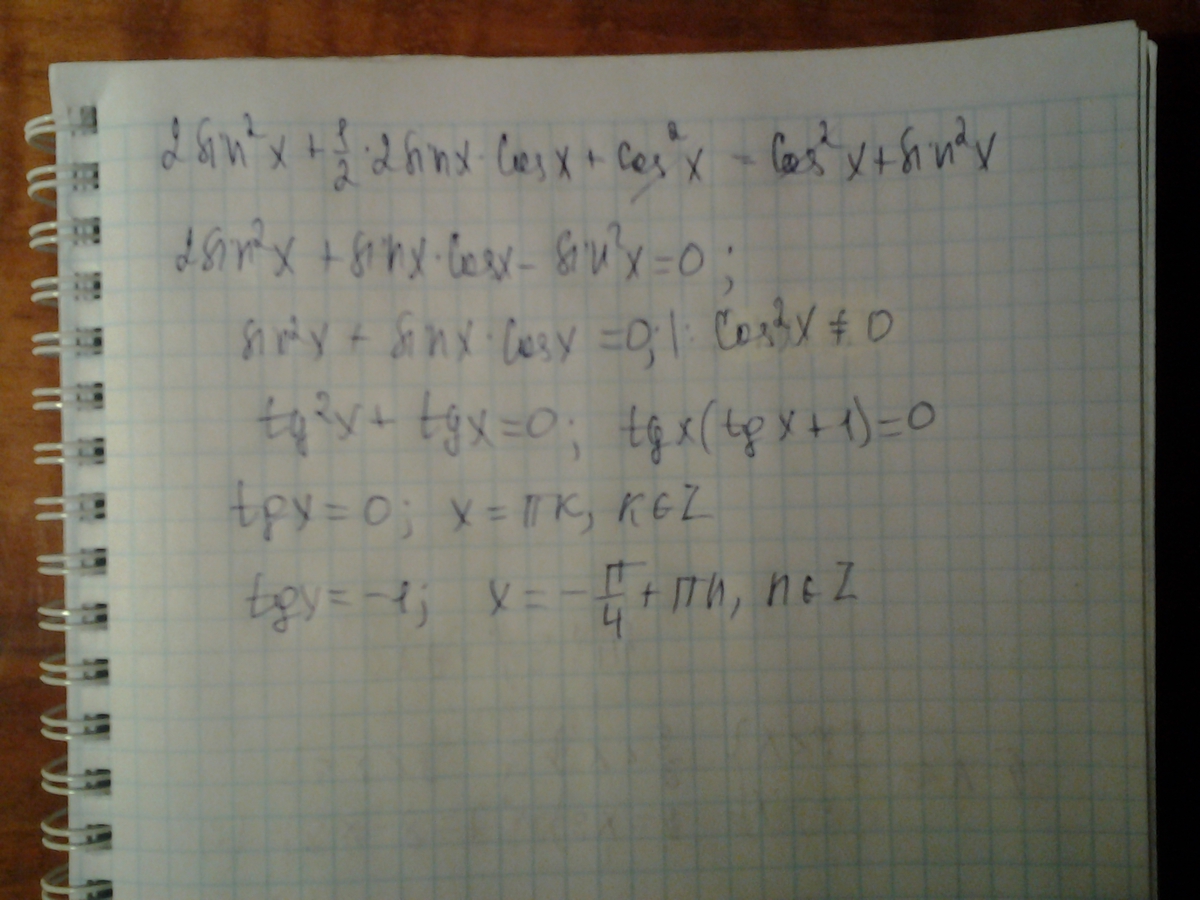 2sin²x + 1/2 · 2sinx · cosx + cos²x = cos²x + sin²x
2sin²x + sinx · cosx - sin²x = 0 ;
sin²x + sinx · cosx = 0; | : cos²x ≠ 0
tg²x + tgx = 0; tgx(tgx + 1) = 0
tgx = 0; x = πк, к ∈ Z
tgx = -1; x = - π/4 + πn, n ∈ Z